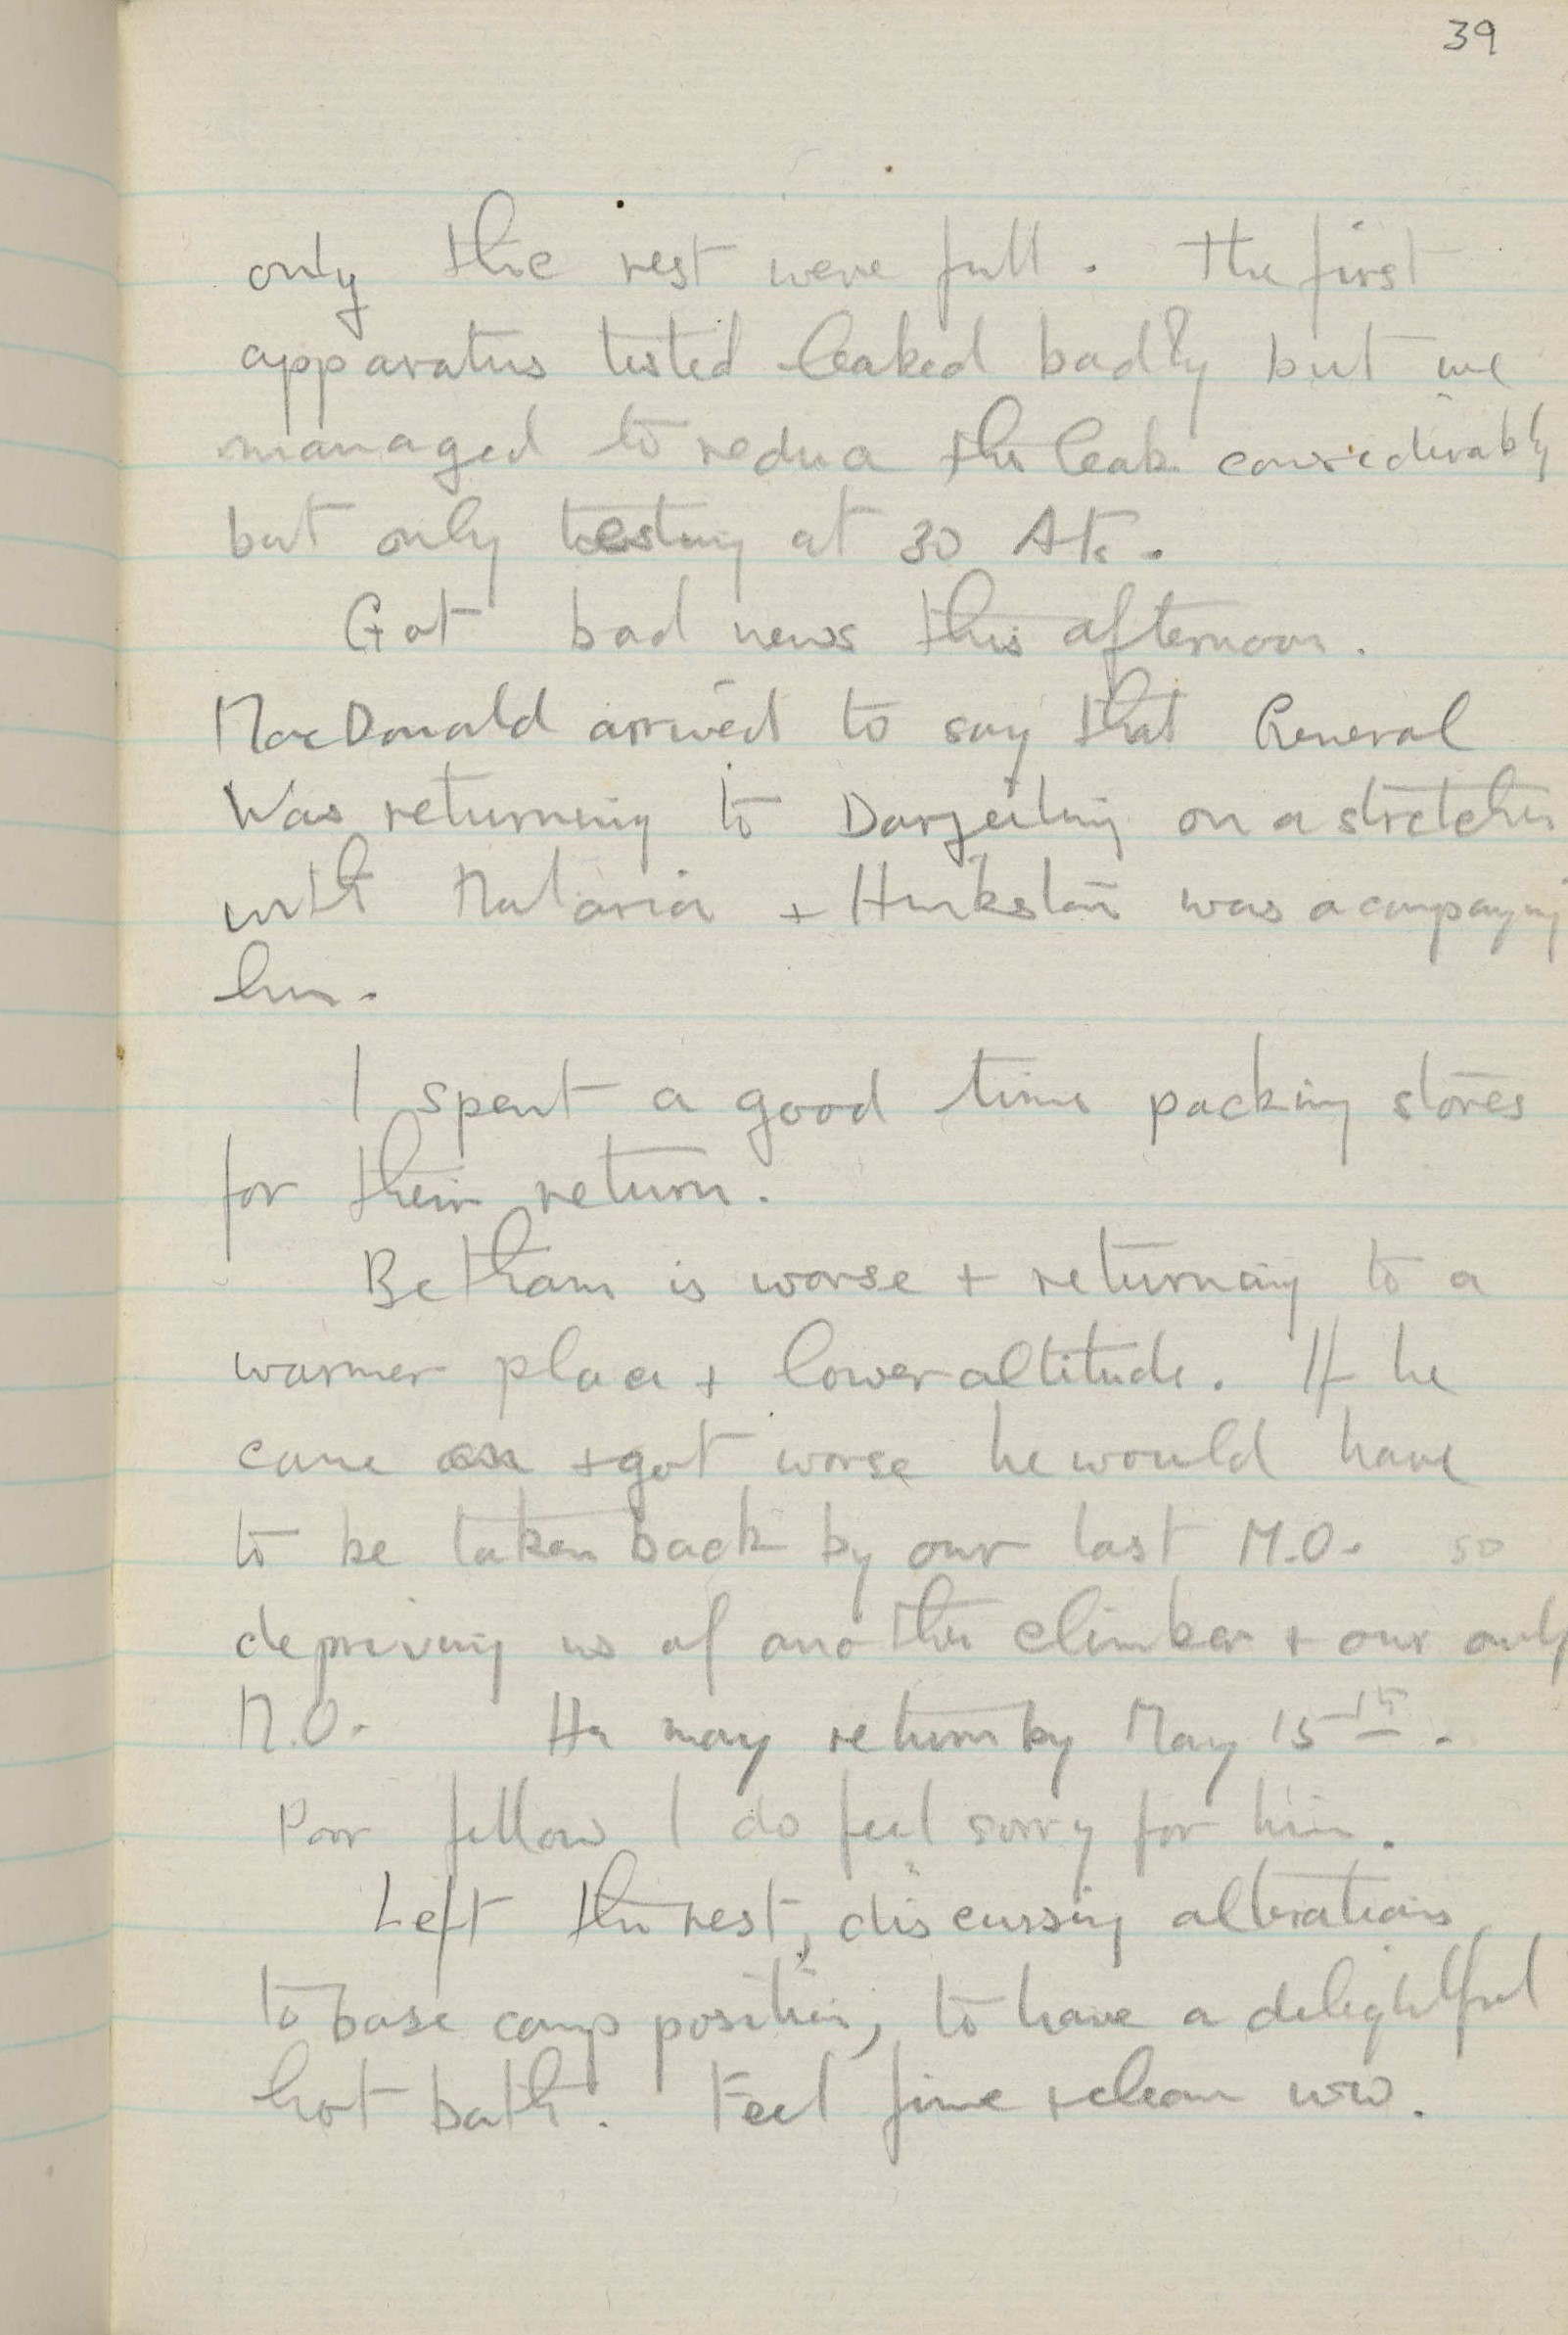 39
only the rest were full. The first
apparatus tested leaked badly but we
managed to reduce the leak considerably
but only testing at 30 Ats.
Got bad news this afternoon.
MacDonald arrived to say that General
Was returning to Darjeeling on a stretcher
with Malaria + Hinkston was acompaying
him.
I spent a good time packing stores
for their return.
Betham is worse + returning to a
warmer place + lower altitude. If he
came on + got worse he would have
to be taken back by our last M.O. so
depriving us of another climber + our only
M.O. He may return by May 15th.
Poor fellow I do feel sorry for him.
Left the rest, discussing alterations
to base camp position, to have a delightful
hot bath. Feel fine + clean now.